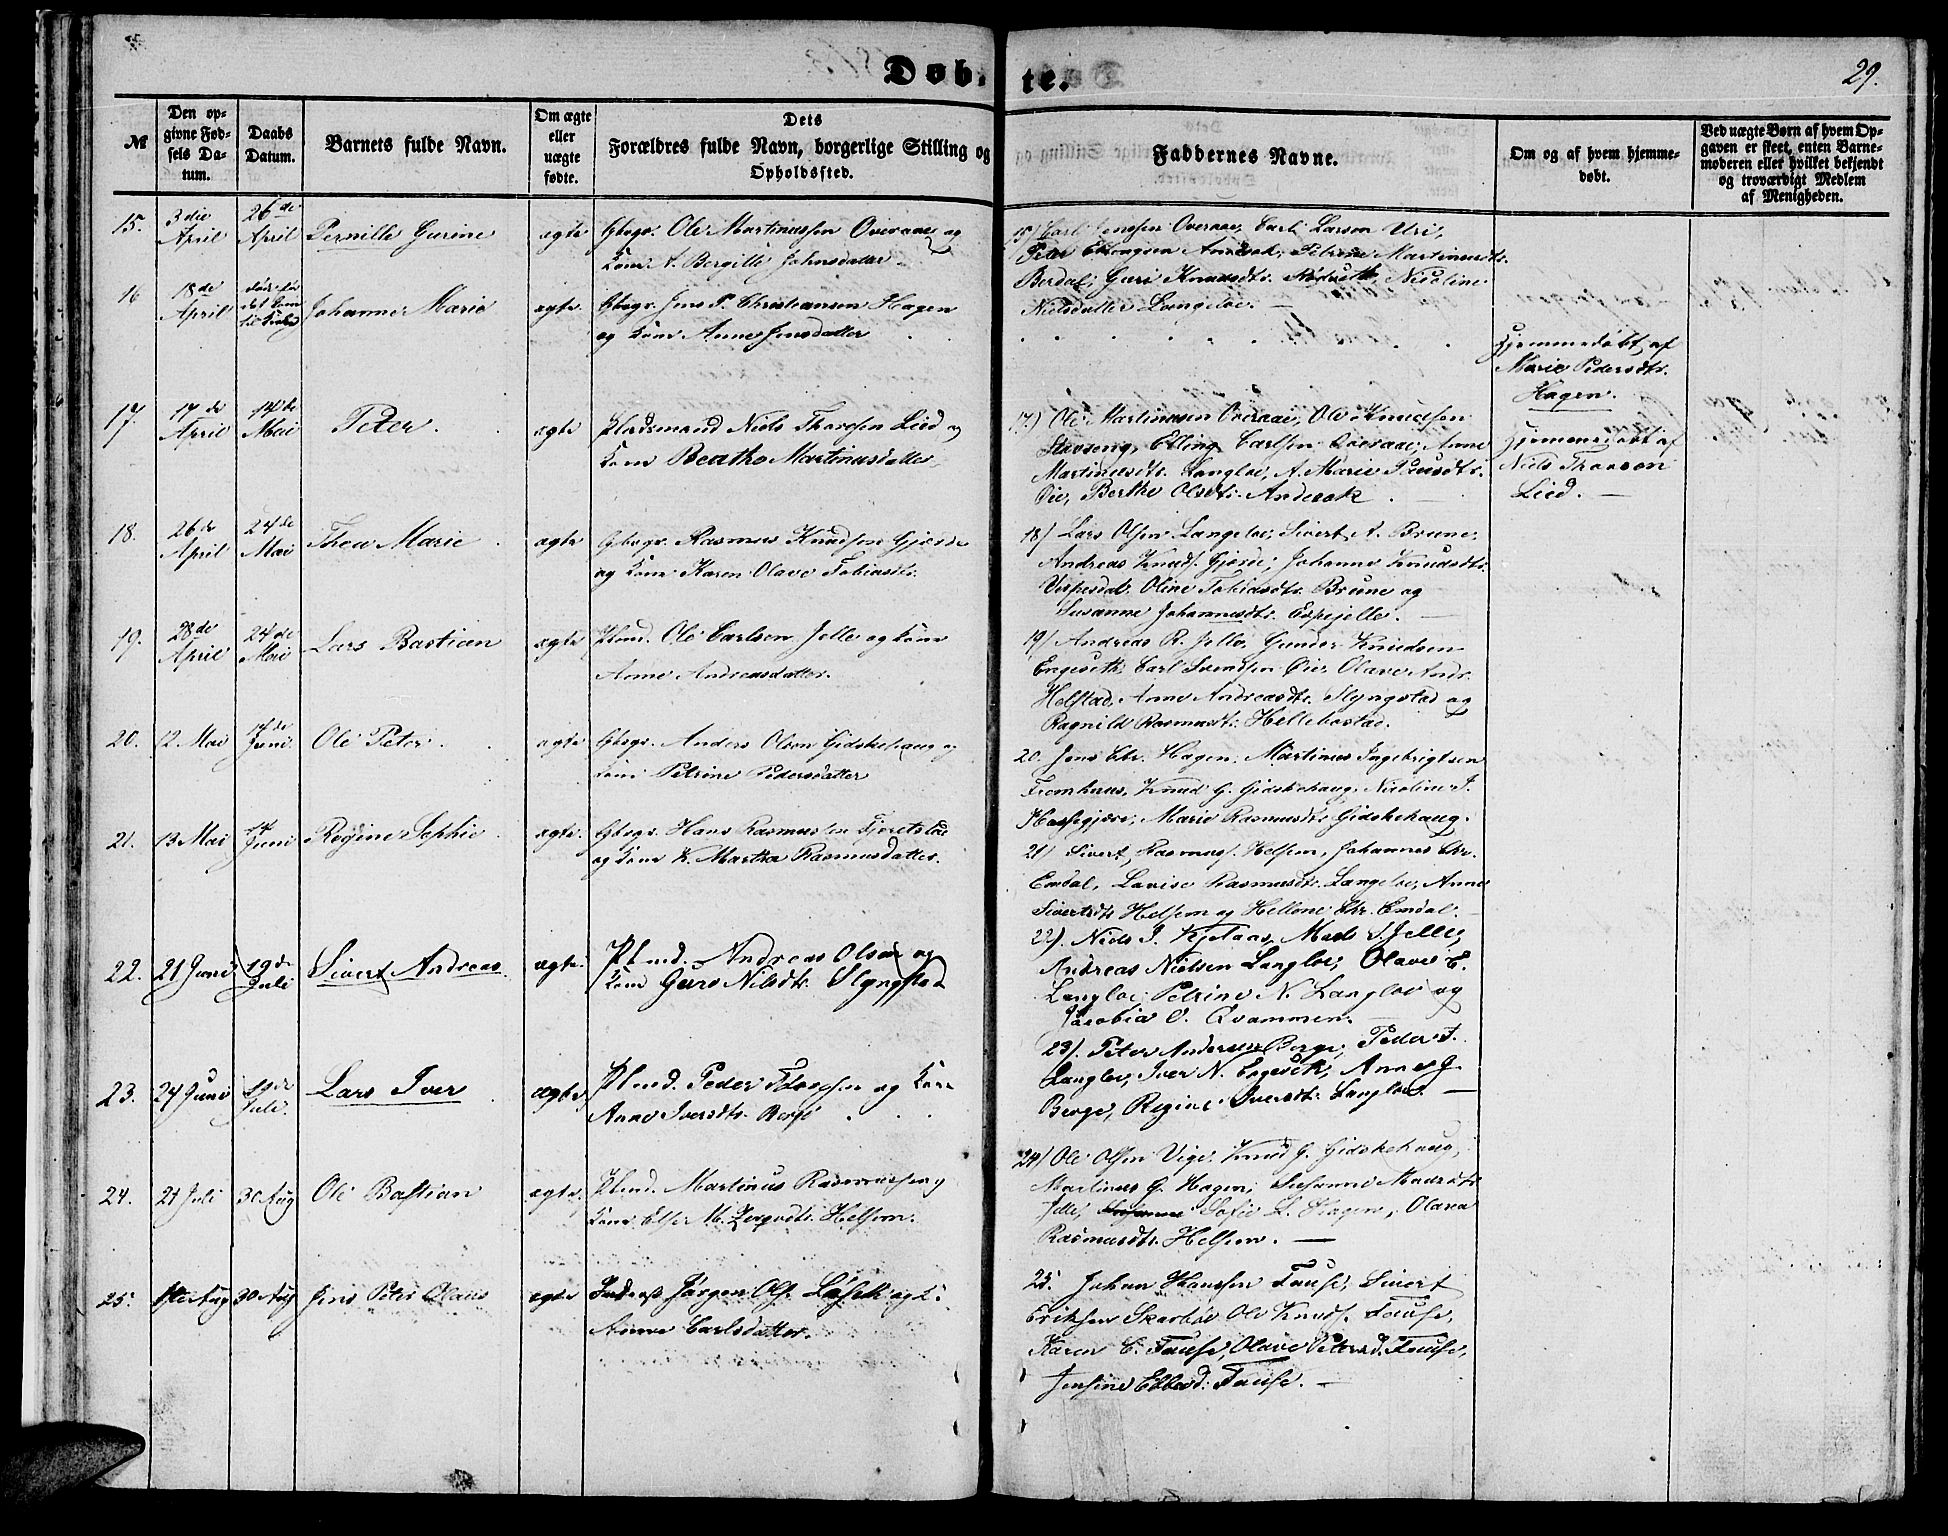 Døb- te.
29.
№
Den op-
givne Fød-
sels Da-
tum.
Daabs
Datum.
Barnets fulde Navn.
Om ægte
eller
uægte
fødte.
Dets
Forældres fulde Navn, borgerlige Stilling og
Opholdssted.
Faddernes Navne.
Om og af hvem hjemme-
døbt.
Ved uægte Børn af hvem Op-
gaven er skeet, enten Barne-
moderen eller hvilket bekjendt
og troværdigt Medlem
af Menigheden.
15. 3die April 26de April Pernille Gurine ægte Gbsgr. Ole Martinussen Overaae og
Kone A. Bergitte Johnsdatter
15/ Carl Jenssen Overaae, Carl Larsen Uri,
Peter Andeok, Petrine Martinusdt.
Berdal, Guri Knudsdt. Nicoline
Nielsdatter Langeloe. —
16 18de April Johanne Marie ægte Gbsgr. Jens P. Christiansen Hagen
og Kone Anne Jensdatter
Hjemmedøbt af
Marie Pedersdtr.
Hagen.
17. 17de April 14de Mai Peter. ægte Pladsmand Niels Thoresen Lied og
Kone Beatho Martinusdatter.
17.) Ole Martinusen Overaae, Ole Knudsen
Elling Carlsen Overaae, Anne
Martinusdtr. Langloe, A. Marie
Øie, Berthe Olsdtr. Andeok. —
Hjemmedøbt af
Niels Thoeson
Lied. —
18. 26de April 24de Mai Thea Marie ægte Gbsgr. Rasmus Knudsen Gjerde
og Kone Karen Olave Tobiasdtr.
18/ Lars Olsen Langeloe, Sivert A. Brune,
Andreas Knuds. Gjerde, Johanne Knudsdtr.
Vespesdal. Oline Tobiasdtr. Brune og
Susanne Johannesdtr. Espejelle. —
19. 28de April 24de Mai Lars Bastian ægte Plmd. Ole Carlsen Jelle og Kone
Anne Andreasdatter.
19/ Andreas R. Jelle, Gunder Knudsen
Engeseth, Carl Svendsen Øie, Olave Andr.
Helstad, Anne Andreasdtr. Slyngstad og
Ragnild Rasmusdtr. Hellebostad.
20. 12 Mai 14de Juni. Ole Peter. ægte Gbsgr. Anders Olson Gidskehaug og
Kone Petrine Pedersdatter
20. Jens Chr. Hagen, Martinus Ingebrigtsen
Fremhuus, Knud G. Gidskehaug, Nicoline I.
Marie Rasmusdtr. Gidskehaug.
21. 13 Mai 14 Juni Regine Sophie ægte. Gbsgr. Hans Rasmussen Fjørtoft
og Kone K. Martha Rasmusdatter.
21/ Sivert Rasmuss. Helsem, Johannes Chr.
Emdal, Lovise Rasmusdtr. Langeloe, Anne
Sivertsdtr. Helsem og Hellene Chr. Emdal. —
22. 21 Juni 19de Juli Sivert Andreas. ægte. Plmd. Andreas Olsen og
Kone Guro Nilsdtr. Slyngstad
22). Niels I. Kjelaas, Mads S. Jelle,
Andreas Nielsen Langloe, Olave E.
Langloe, Petrine N. Langloe og
Jacobia O. Qvammen. —
23. 24 Juni 19de Juli. Lars Iver ægte. Plmd. Peder og Kone
Anne Iversdtr. Berge
23). Peter Andersen Berge, Peder I.
Langloe, Iver N. Engesæt, Anne G.
Berge, Regine Iversdtr. Langloe. —
24. 21 Juli 30 Aug Ole Bastian ægte. Plmd. Martinus Rasmussen og
Kone Else M. Helsem.
24/ Ole Olsen Vige. Knud G. Gidskehaug,
Martinus G. Hagen, Susanne Madsdtr.
Jelle, Sofie L. Hagen, Olava
Rasmusdtr. Helsem. —
25. 1ste Aug 30 Aug Jens Peter Olaus ægte Inderst Jørgen Ols. Løsæth og K.
Anne Carlsdatter.
25. Johan Hanssen Tause, Sivert
Eriksen Skarbøe Ole Knuds. Tause,
Karen E. Tause, Olave Petersd. Tause,
Jensine Ebbesd. Tause. —